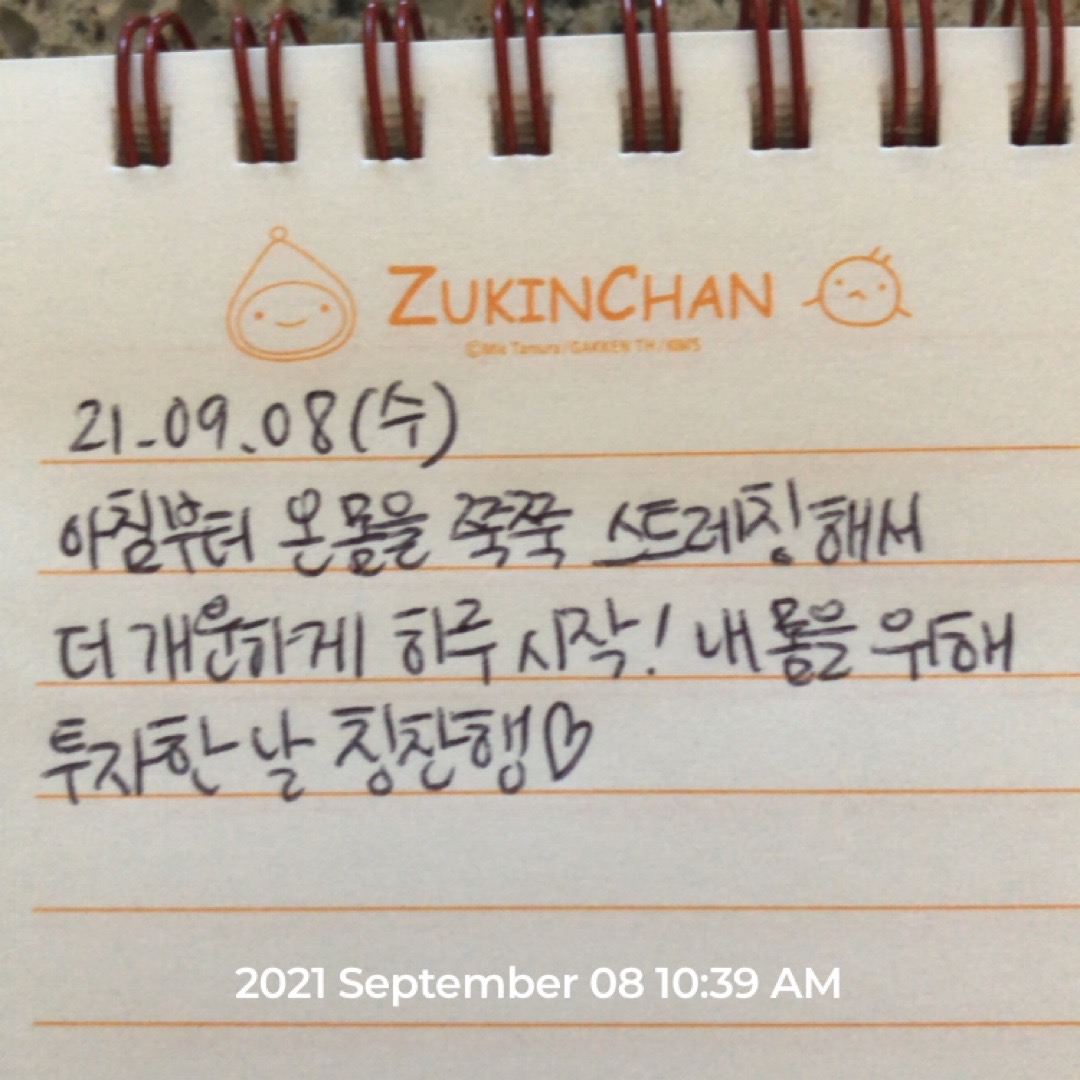 ZUKINCHAN
©Mie Tamura/GAKKEN TH/KIM'S
21.09.08(수)
아침부터 온몸을 쭉쭉 스트레칭해서
더 개운하게 하루 시작! 내 몸을 위해
투자한 날 칭찬행♡
2021 September 08 10:39 AM